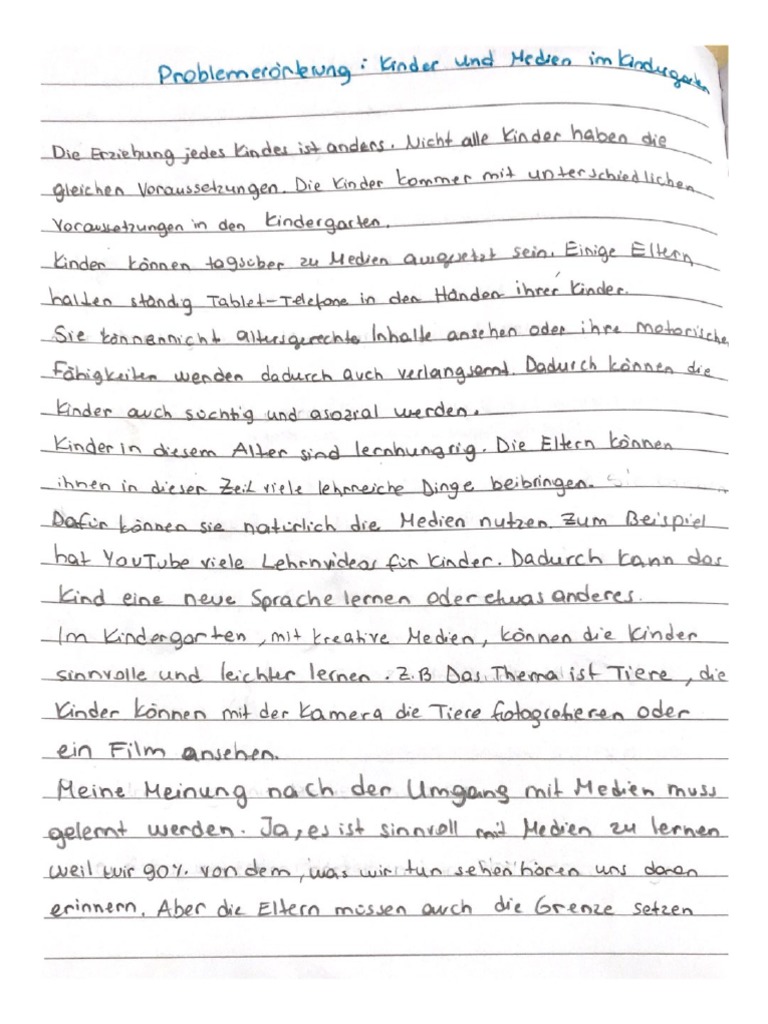 Problemerörterung: Kinder und Medien im Kindergarten
Die Erziehung jedes Kindes ist anders. Nicht alle Kinder haben die
gleichen Voraussetzungen. Die Kinder kommen mit unterschiedlichen
Voraussetzungen in den Kindergarten.
Kinder können tagsüber zu Medien ausgesetzt sein. Einige Eltern
halten ständig Tablet-Telefone in den Händen ihrer Kinder.
Sie können nicht altersgerechte Inhalte ansehen oder ihre motorische
Fähigkeiten werden dadurch auch verlangsamt. Dadurch können die
Kinder auch süchtig und asozial werden.
Kinder in diesem Alter sind lernhungrig. Die Eltern können
ihnen in dieser Zeit viele lehrreiche Dinge beibringen.
Dafür können sie natürlich die Medien nutzen. Zum Beispiel
hat YouTube viele Lehrnvideos für Kinder. Dadurch kann das
Kind eine neue Sprache lernen oder etwas anderes.
Im Kindergarten, mit kreative Medien, können die Kinder
sinnvolle und leichter lernen. Z.B Das Thema ist Tiere, die
Kinder können mit der Kamera die Tiere fotografieren oder
ein Film ansehen.
Meine Meinung nach der Umgang mit Medien muss
gelernt werden. Ja, es ist sinnvoll mit Medien zu lernen
weil wir 90% von dem, was wir tun sehen hören uns daran
erinnern. Aber die Eltern müssen auch die Grenze setzen